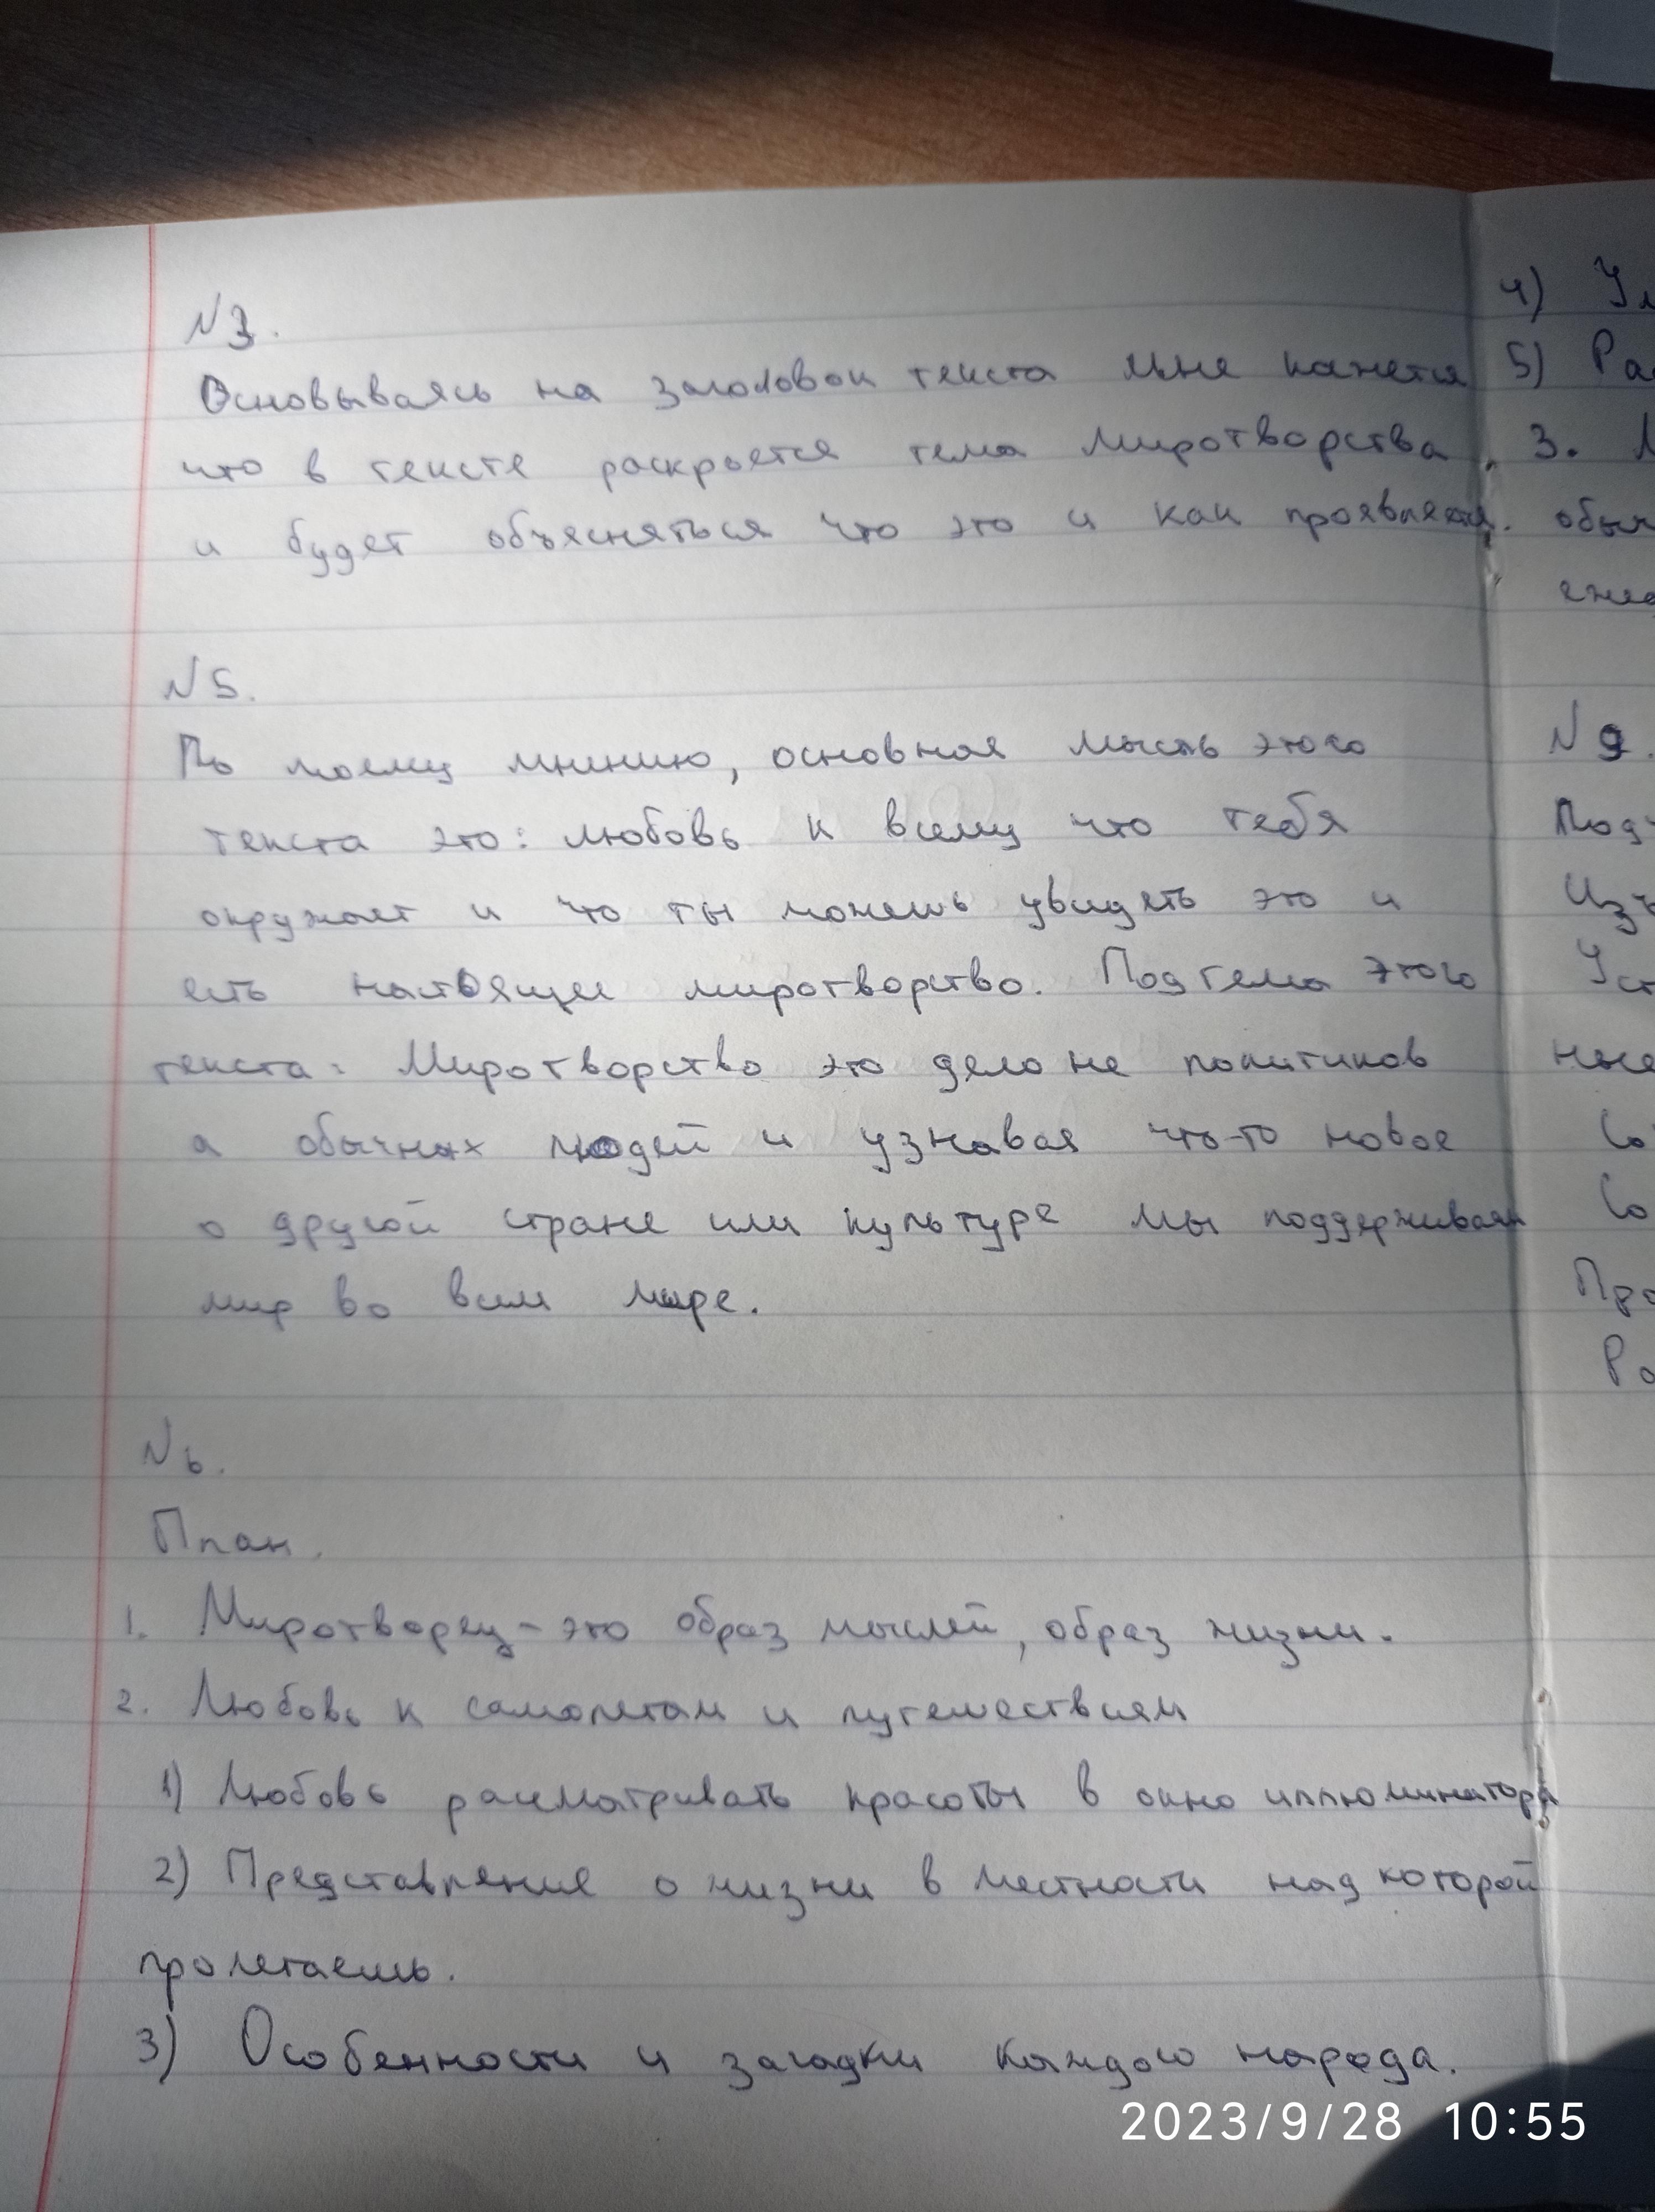 N3.
Основываясь на заголовок текста мне кажется
что в тексте раскрыется тема миротворства
и будет объясняться что это и как проявляется.
N5.
По моему мнению, основная мысль этого
текста это: любовь к всему что тебя
окружает и что ты можешь увидеть это и
есть настоящее миротворство. Подтема этого
текста: Миротворство это дело не политиков
а обычных людей и узнавая что-то новое
о другой стране или культуре мы поддерживаем
мир во всем мире.
N6.
План.
1. Миротворец - это образ мыслей, образ жизни.
2. Любовь к самолетам и путешествиям
1) Любовь рассматривать красоты в окно иллюминатора
2) Представление о жизни в местности над которой
пролетаешь.
3) Особенности и загадки каждого народа.
4)
5)
3.
N9.
2023/9/28 10:55